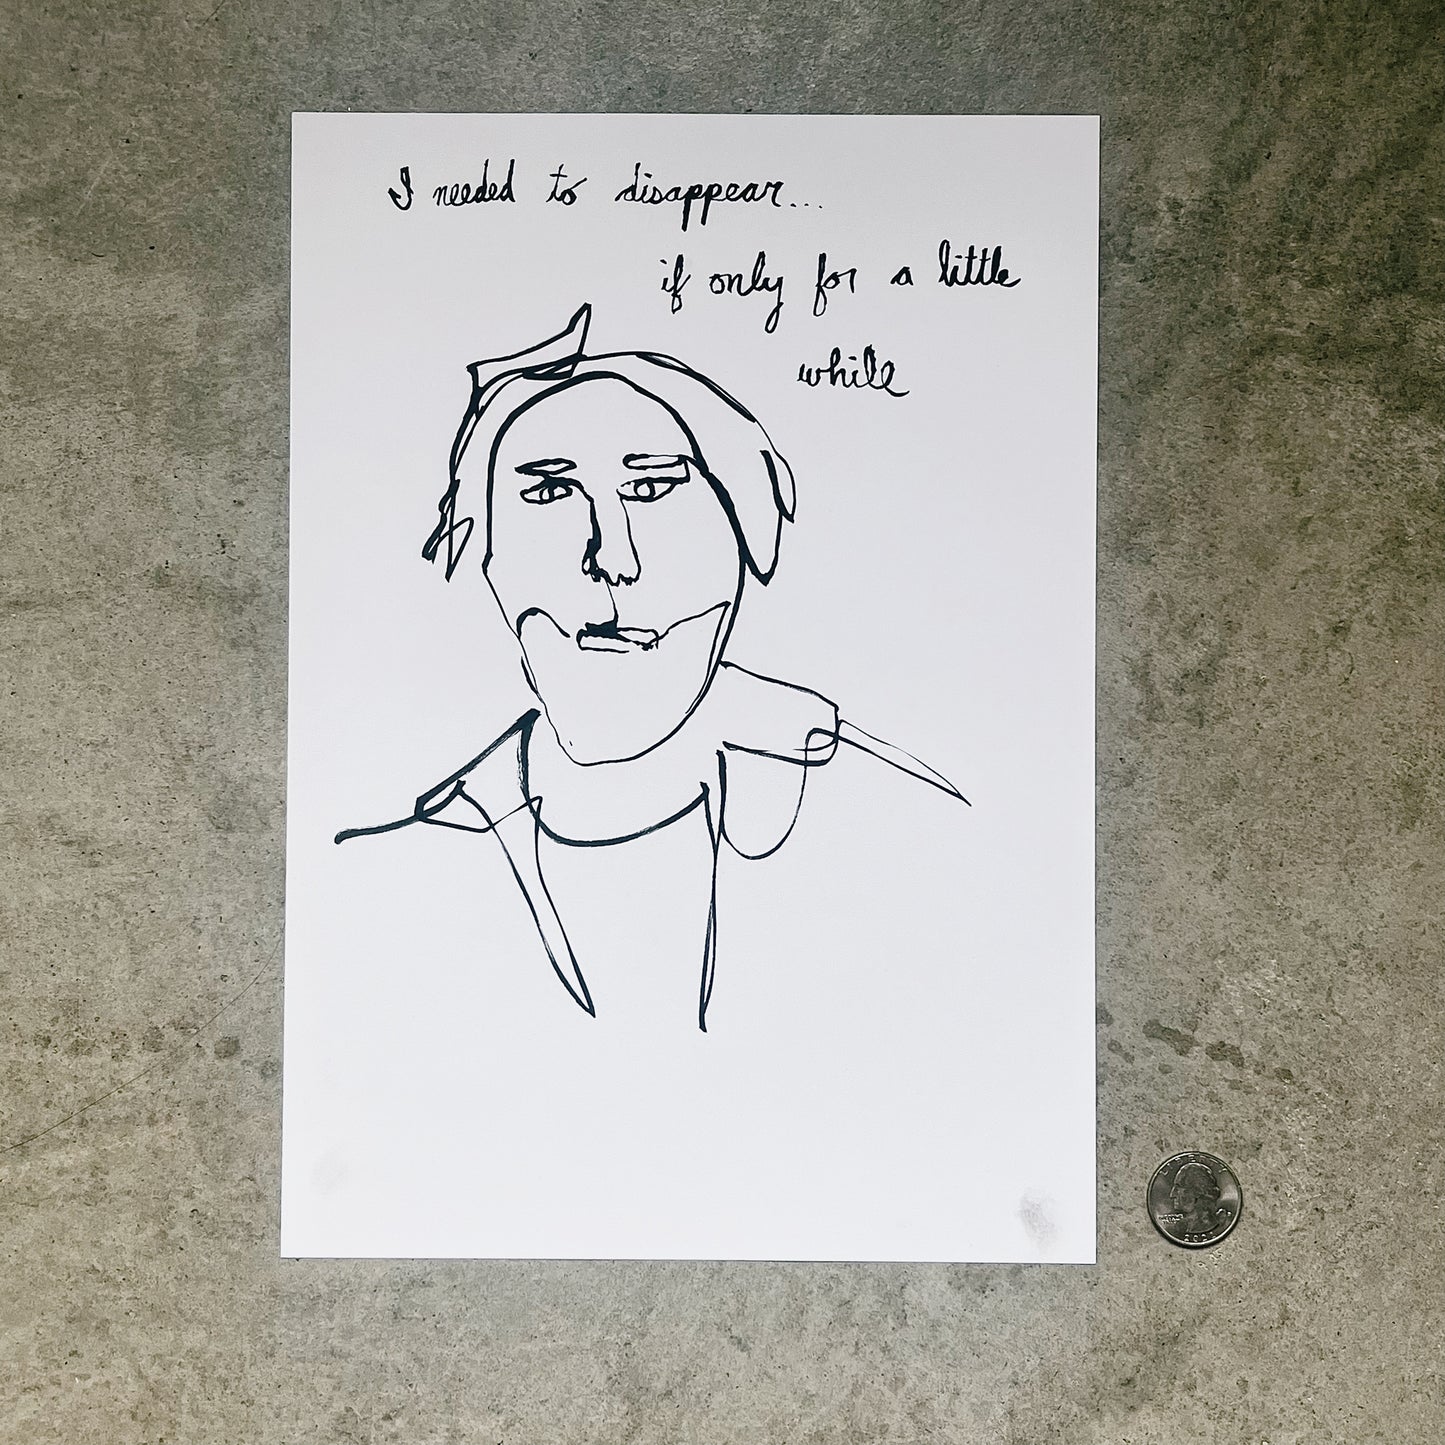 I needed to disappear...
if only for a little
while
LIBERTY